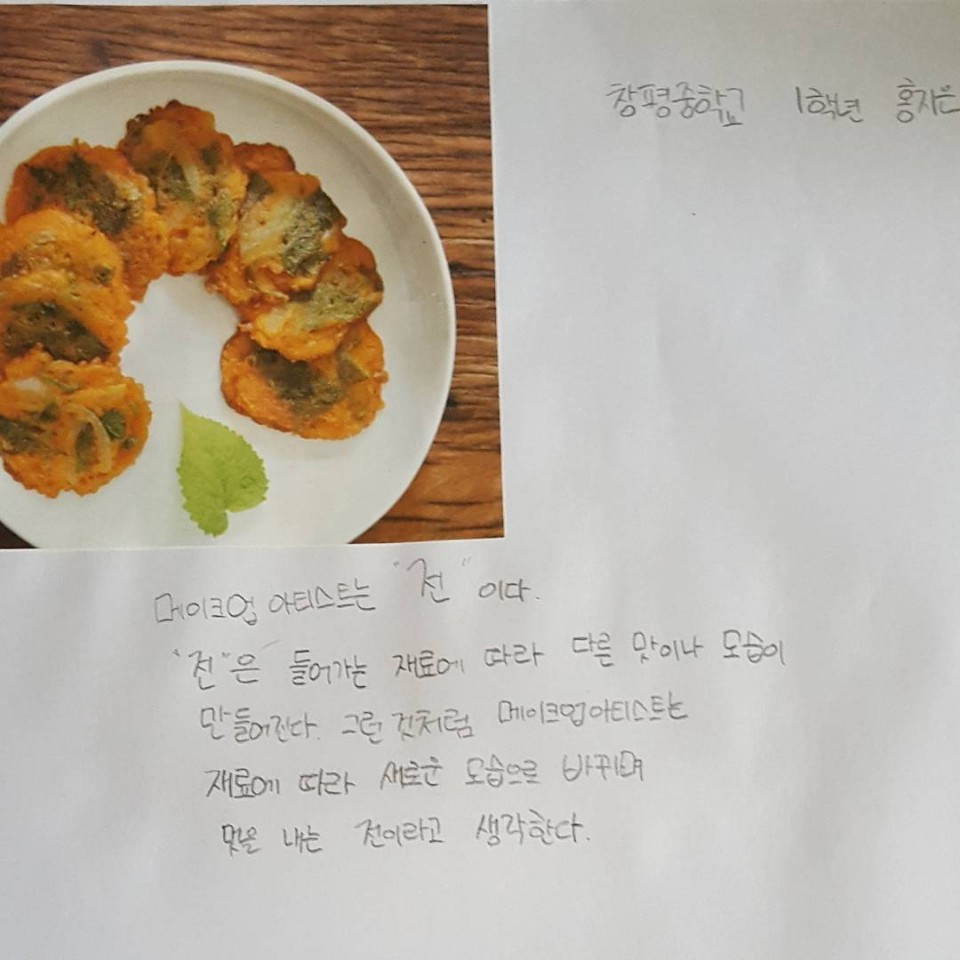 창평중학교 1학년 홍지은
메이크업 아티스트는 "전" 이다.
"전"은 들어가는 재료에 따라 다른 맛이나 모습이
만들어진다. 그런 것처럼 메이크업아티스트는
재료에 따라 새로운 모습으로 바뀌며
맛을 내는 전이라고 생각한다.